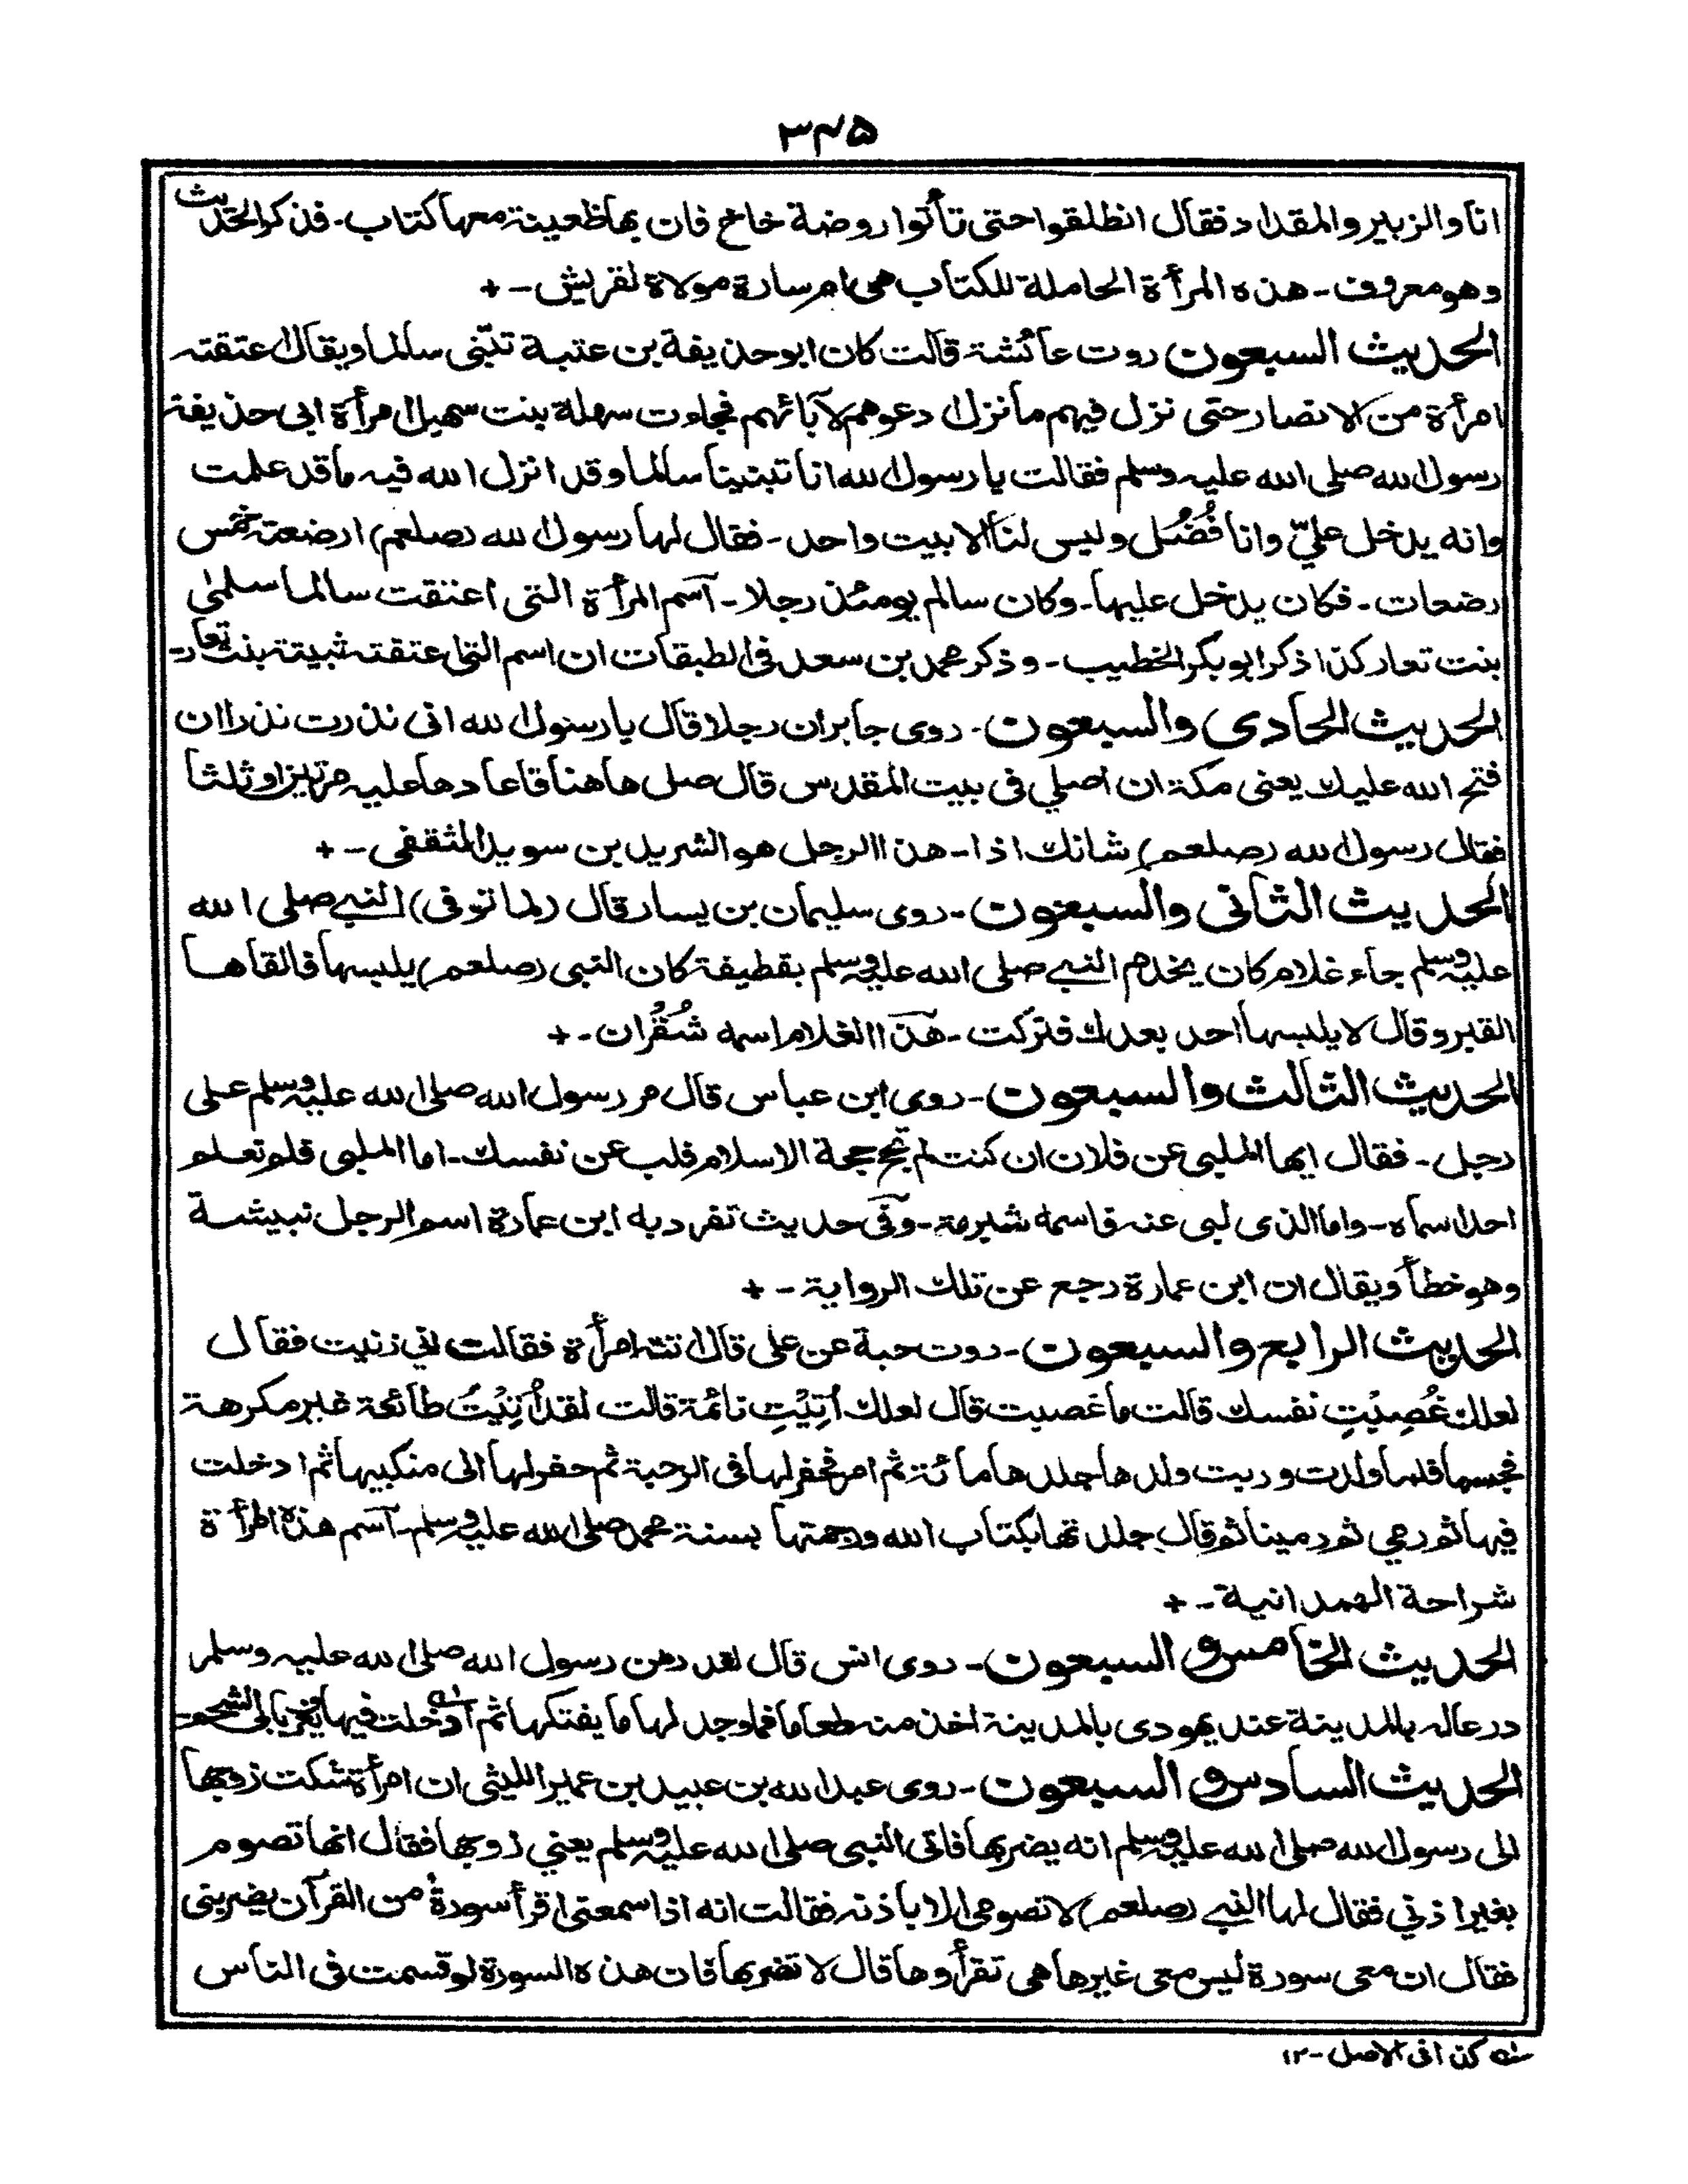 ۳۴۵
انا والزبير والمقداد فقال انطلقوا حتى تأتوا روضة خاخ فان بها ظعينة معها كتاب - فذكر الحديث
وهو معروف - هذه المرأة الحاملة للكتاب هى ام سارة مولاة لقريش - +
الحديث السبعون روت عائشة قالت كان ابو حذيفة بن عتبة تبنى سالما ويقال اعتقته
امرأة من الانصار حتى نزل فيهم ما نزل ادعوهم لآبائهم فجاءت سهلة بنت سهيل امرأة ابى حذيفة
رسول الله صلى الله عليه وسلم فقالت يا رسول الله انا تبنينا سالما وقد انزل الله فيه ما قد علمت
وانه يدخل علىّ وانا فُضُل وليس لنا الا بيت واحد - فقال لها رسول الله (صلعم) ارضعته خمس
رضعات - فكان يدخل عليها - وكان سالم يومئذ رجلا - آسم المرأة التى اعتقت سالما سلمى
بنت تعار كذا ذكر ابو بكر الخطيب - وذكر محمد بن سعد فى الطبقات ان اسم التى اعتقته ثبيتة بنت تعار -
الحديث الحادى والسبعون - روى جابر ان رجلا قال يا رسول الله انى نذرت نذرا ان
فتح الله عليك يعنى مكة ان اصلي فى بيت المقدس قال صل هاهنا فاعادها عليه مرتين او ثلثا
فقال رسول الله (صلعم) شانك اذا - هذا الرجل هو الشريد بن سويد الثقفى - +
الحديث الثانى والسبعون - روى سليمان بن يسار قال (لما توفى) النبي صلى الله
عليه وسلم جاء غلام كان يخدم النبي صلى الله عليه وسلم بقطيفة كان النبى (صلعم) يلبسها فالقاها
القبر وقال لا يلبسها احد بعدك فتركت - هذا الغلام اسمه شُقُران - +
الحديث الثالث والسبعون - روى ابن عباس قال مر رسول الله صلى الله عليه وسلم على
رجل - فقال ايها الملبى عن فلان ان كنت لم تحج حجة الاسلام فلب عن نفسك - اما الملبى فلم تعلم
احدا سماه - واما الذى لبى عنه فاسمه شبرمة - وفى حديث تفرد به ابن عمارة اسم الرجل نبيشة
وهو خطأ ويقال ان ابن عمارة رجع عن تلك الرواية - +
الحديث الرابع والسبعون - روت حبة عن على قال اتته امرأة فقالت اني زنيت فقال
لعلك غُصِبْتِ نفسك قالت ما غصبت قال لعلك أتِيْتِ نائمة قالت لقد أُتِيْتُ طائعة غير مكرهة
فحبسها فلما ولدت و ربيت ولدها جلدها مائة ثم امر فحفر لها فى الرحبة ثم حفر لها الى منكبيها ثم ادخلت
فيها ثم رمي ثم رمينا ثم قال جلدتها بكتاب الله ورجمتها بسنة محمد صلى الله عليه وسلم - آسم هذه المرأة
شراحة الهمدانية - +
الحديث الخامس و السبعون - روى انس قال لقد رهن رسول الله صلى الله عليه وسلم
درعا له بالمدينة عند يهودى بالمدينة اخذ منه طعاما فما وجد لها ما يفتكها ثم ادخلت فيها
الحديث السادس و السبعون - روى عبد الله بن عبيد بن عمير الليثى ان امرأة شكت زوجها
الى رسول الله صلى الله عليه وسلم انه يضربها فاتى النبى صلى الله عليه وسلم يعني زوجها فقال انها تصوم
بغير اذنى فقال لها النبي (صلعم) لا تصومى الا باذنه فقالت انه اذا سمعنى اقرأ سورة من القرآن يضربنى
فقال ان معى سورة ليس معى غيرها هى تقرأوها قال لا تضربها فان هذه السورة لو قسمت فى الناس
سه كذا فى الاصل - ۱۲